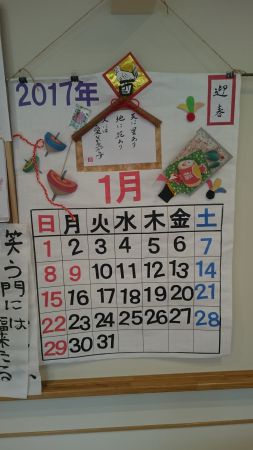 2017年
迎春
天に星あり
地に花あり
人に愛
1月
日 月 火 水 木 金 土
1 2 3 4 5 6 7
8 9 10 11 12 13 14
15 16 17 18 19 20 21
22 23 24 25 26 27 28
29 30 31
笑う門には
福来たる